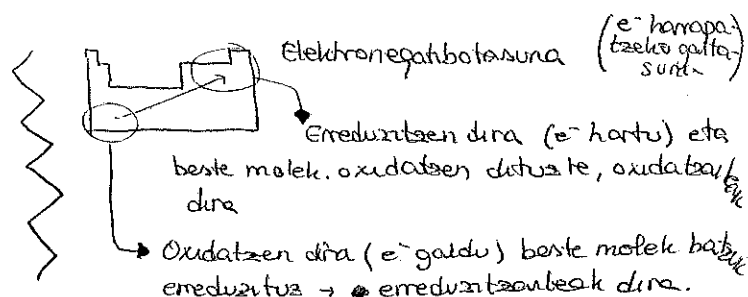 Elektronegatibotasuna (e⁻ harrapa-
tzeko gaita-
suna
Erreduzitzen dira (e⁻ hartu) eta
beste molek. oxidatzen dituzte, oxidatzaileak
dira
Oxidatzen dira (e⁻ galdu) beste molek batzuk
erreduzituz → erreduzitzaileak dira.